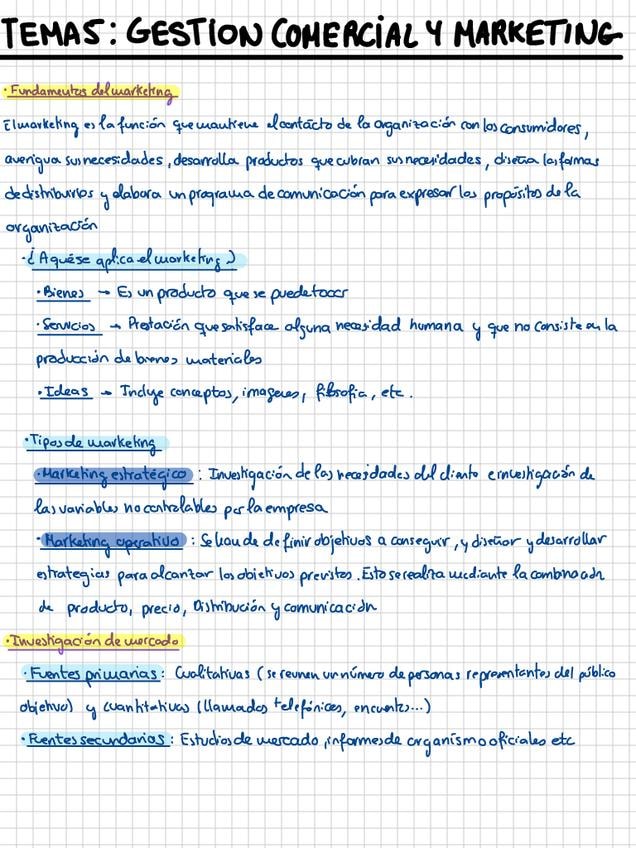 TEMA5: GESTION COMERCIAL Y MARKETING
· Fundamentos del marketing
El marketing es la función que mantiene el contacto de la organización con los consumidores,
averigua sus necesidades, desarrolla productos que cubran sus necesidades, diseña las formas
de distribuirlos y elabora un programa de comunicación para expresar los propósitos de la
organización
· ¿A qué se aplica el marketing?
· Bienes → Es un producto que se puede tocar
· Servicios → Prestación que satisface alguna necesidad humana y que no consiste en la
producción de bienes materiales
· Ideas → Incluye conceptos, imagenes, filosofia, etc.
· Tipos de marketing
· Marketing estratégico: Investigación de las necesidades del cliente e investigación de
las variables no controlables por la empresa
· Marketing operativo: Se han de definir objetivos a conseguir, y diseñar y desarrollar
estrategias para alcanzar los objetivos previstos. Esto se realiza mediante la combinación
de producto, precio, Distribución y comunicación
· Investigación de mercado
· Fuentes primarias: Cualitativas (se reunen un número de personas representantes del público
objetivo) y cuantitativas (llamadas telefónicas, encuestas...)
· Fuentes secundarias: Estudios de mercado, informes de organismo oficiales etc